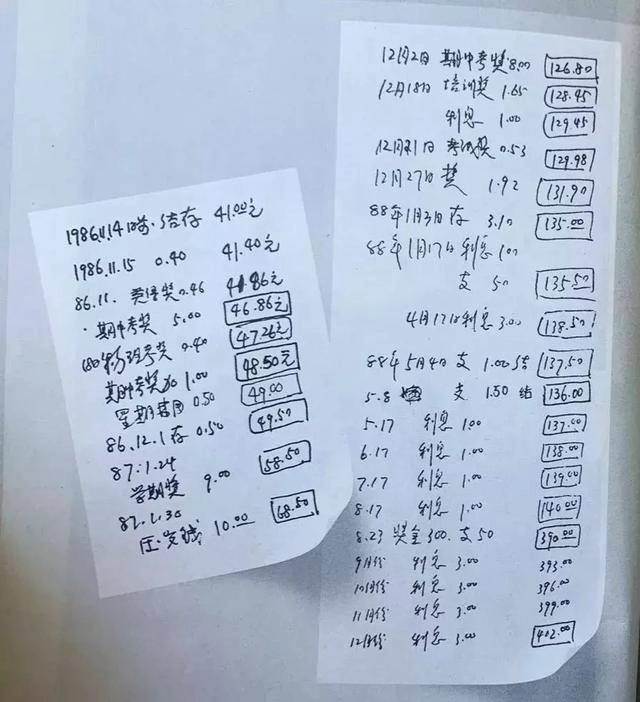 1986.11.14日前.结存 41.00元
1986.11.15 0.40 41.40元
86.11. 英语奖0.46 41.86元
期中考奖 5.00 46.86元
考奖 0.40 47.26元
期中考奖加 1.00 48.50元
星期 0.50 49.00
86.12.1存 0.50 49.50
87.1.24
学期奖 9.00 58.50
87.1.30
压岁钱 10.00 68.50
12月2日 期中考奖8.00 126.80
12月18日 培训奖 1.65 128.45
利息 1.00 129.45
12月21日 考试奖0.53 129.98
12月27日 奖 1.92 131.90
88年1月3日存 3.10 135.00
88年1月17日利息 1.00
支 50 135.50
4月17日利息 3.00 138.50
88年5月4日支 1.00结 137.50
5.8 支 1.50 结 136.00
5.17 利息 1.00 137.00
6.17 利息 1.00 138.00
7.17 利息 1.00 139.00
8.17 利息 1.00 140.00
8.23 奖金300. 支50 390.00
9月份 利息 3.00 393.00
10月份 利息 3.00 396.00
11月份 利息 3.00 399.00
12月份 利息 3.00 402.00